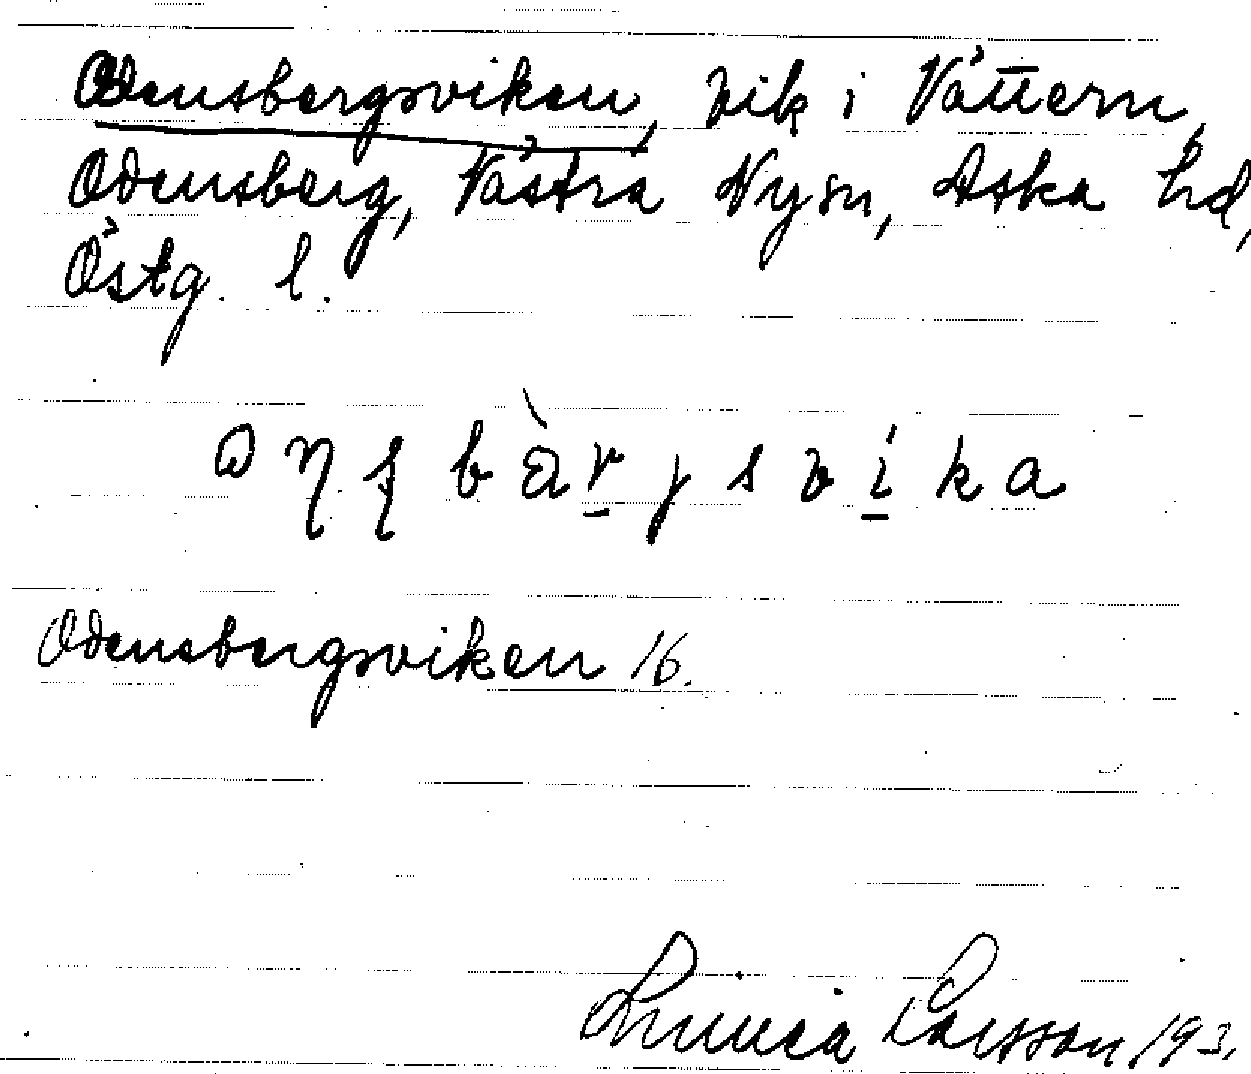 Odensbergsviken, vik i Vättern,
Odensberg, Västra Ny sn, Aska hd,
Östg. l.
Odensbergsviken 16.
Linnea Larsson 193